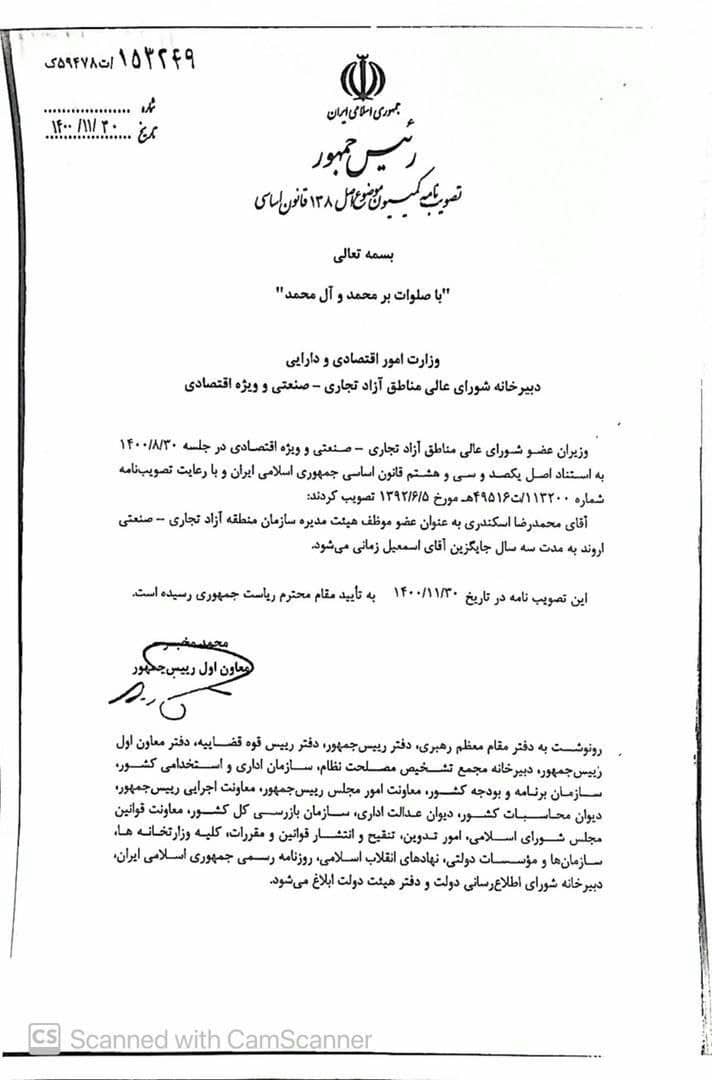 ۱۵۳۲۴۹/ت۵۹۴۷۸ک
شماره ..................
تاریخ ۱۴۰۰/۱۱/۳۰
جمهوری اسلامی ایران
رئیس جمهور
تصویب نامه کمیسیون موضوع اصل ۱۳۸ قانون اساسی
بسمه تعالی
"با صلوات بر محمد و آل محمد"
وزارت امور اقتصادی و دارایی
دبیرخانه شورای عالی مناطق آزاد تجاری – صنعتی و ویژه اقتصادی
وزیران عضو شورای عالی مناطق آزاد تجاری – صنعتی و ویژه اقتصادی در جلسه ۱۴۰۰/۸/۳۰
به استناد اصل یکصد و سی و هشتم قانون اساسی جمهوری اسلامی ایران و با رعایت تصویب‌نامه
شماره ۱۱۳۲۰۰/ت۴۹۵۱۶هـ مورخ ۱۳۹۲/۶/۵ تصویب کردند:
آقای محمدرضا اسکندری به عنوان عضو موظف هیئت مدیره سازمان منطقه آزاد تجاری – صنعتی
اروند به مدت سه سال جایگزین آقای اسمعیل زمانی می‌شود.
این تصویب نامه در تاریخ ۱۴۰۰/۱۱/۳۰ به تأیید مقام محترم ریاست جمهوری رسیده است.
محمد مخبر
معاون اول رییس‌جمهور
رونوشت به دفتر مقام معظم رهبری، دفتر رییس‌جمهور، دفتر رییس قوه قضاییه، دفتر معاون اول
رییس‌جمهور، دبیرخانه مجمع تشخیص مصلحت نظام، سازمان اداری و استخدامی کشور،
سازمان برنامه و بودجه کشور، معاونت امور مجلس رییس‌جمهور، معاونت اجرایی رییس‌جمهور،
دیوان محاسبات کشور، دیوان عدالت اداری، سازمان بازرسی کل کشور، معاونت قوانین
مجلس شورای اسلامی، امور تدوین، تنقیح و انتشار قوانین و مقررات، کلیه وزارتخانه ها،
سازمان‌ها و مؤسسات دولتی، نهادهای انقلاب اسلامی، روزنامه رسمی جمهوری اسلامی ایران،
دبیرخانه شورای اطلاع‌رسانی دولت و دفتر هیئت دولت ابلاغ می‌شود.
CS Scanned with CamScanner